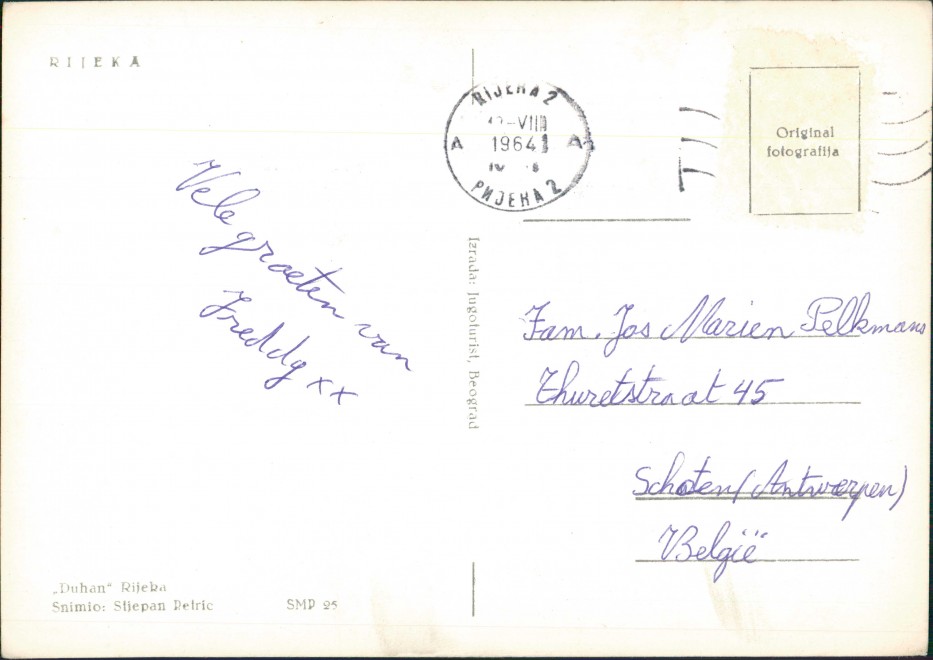 RIJEKA
RIJEKA 2
-VIII
1964
A A
РИЈЕКА 2
Original
fotografija
Vele groeten van
Freddy xx
Izrada: Jugoturist, Beograd
Fam. Jos Marien Pelkmans
Thuretstraat 45
Schoten (Antwerpen)
België
„Duhan“ Rijeka
Snimio: Stjepan Petric
SMP 25